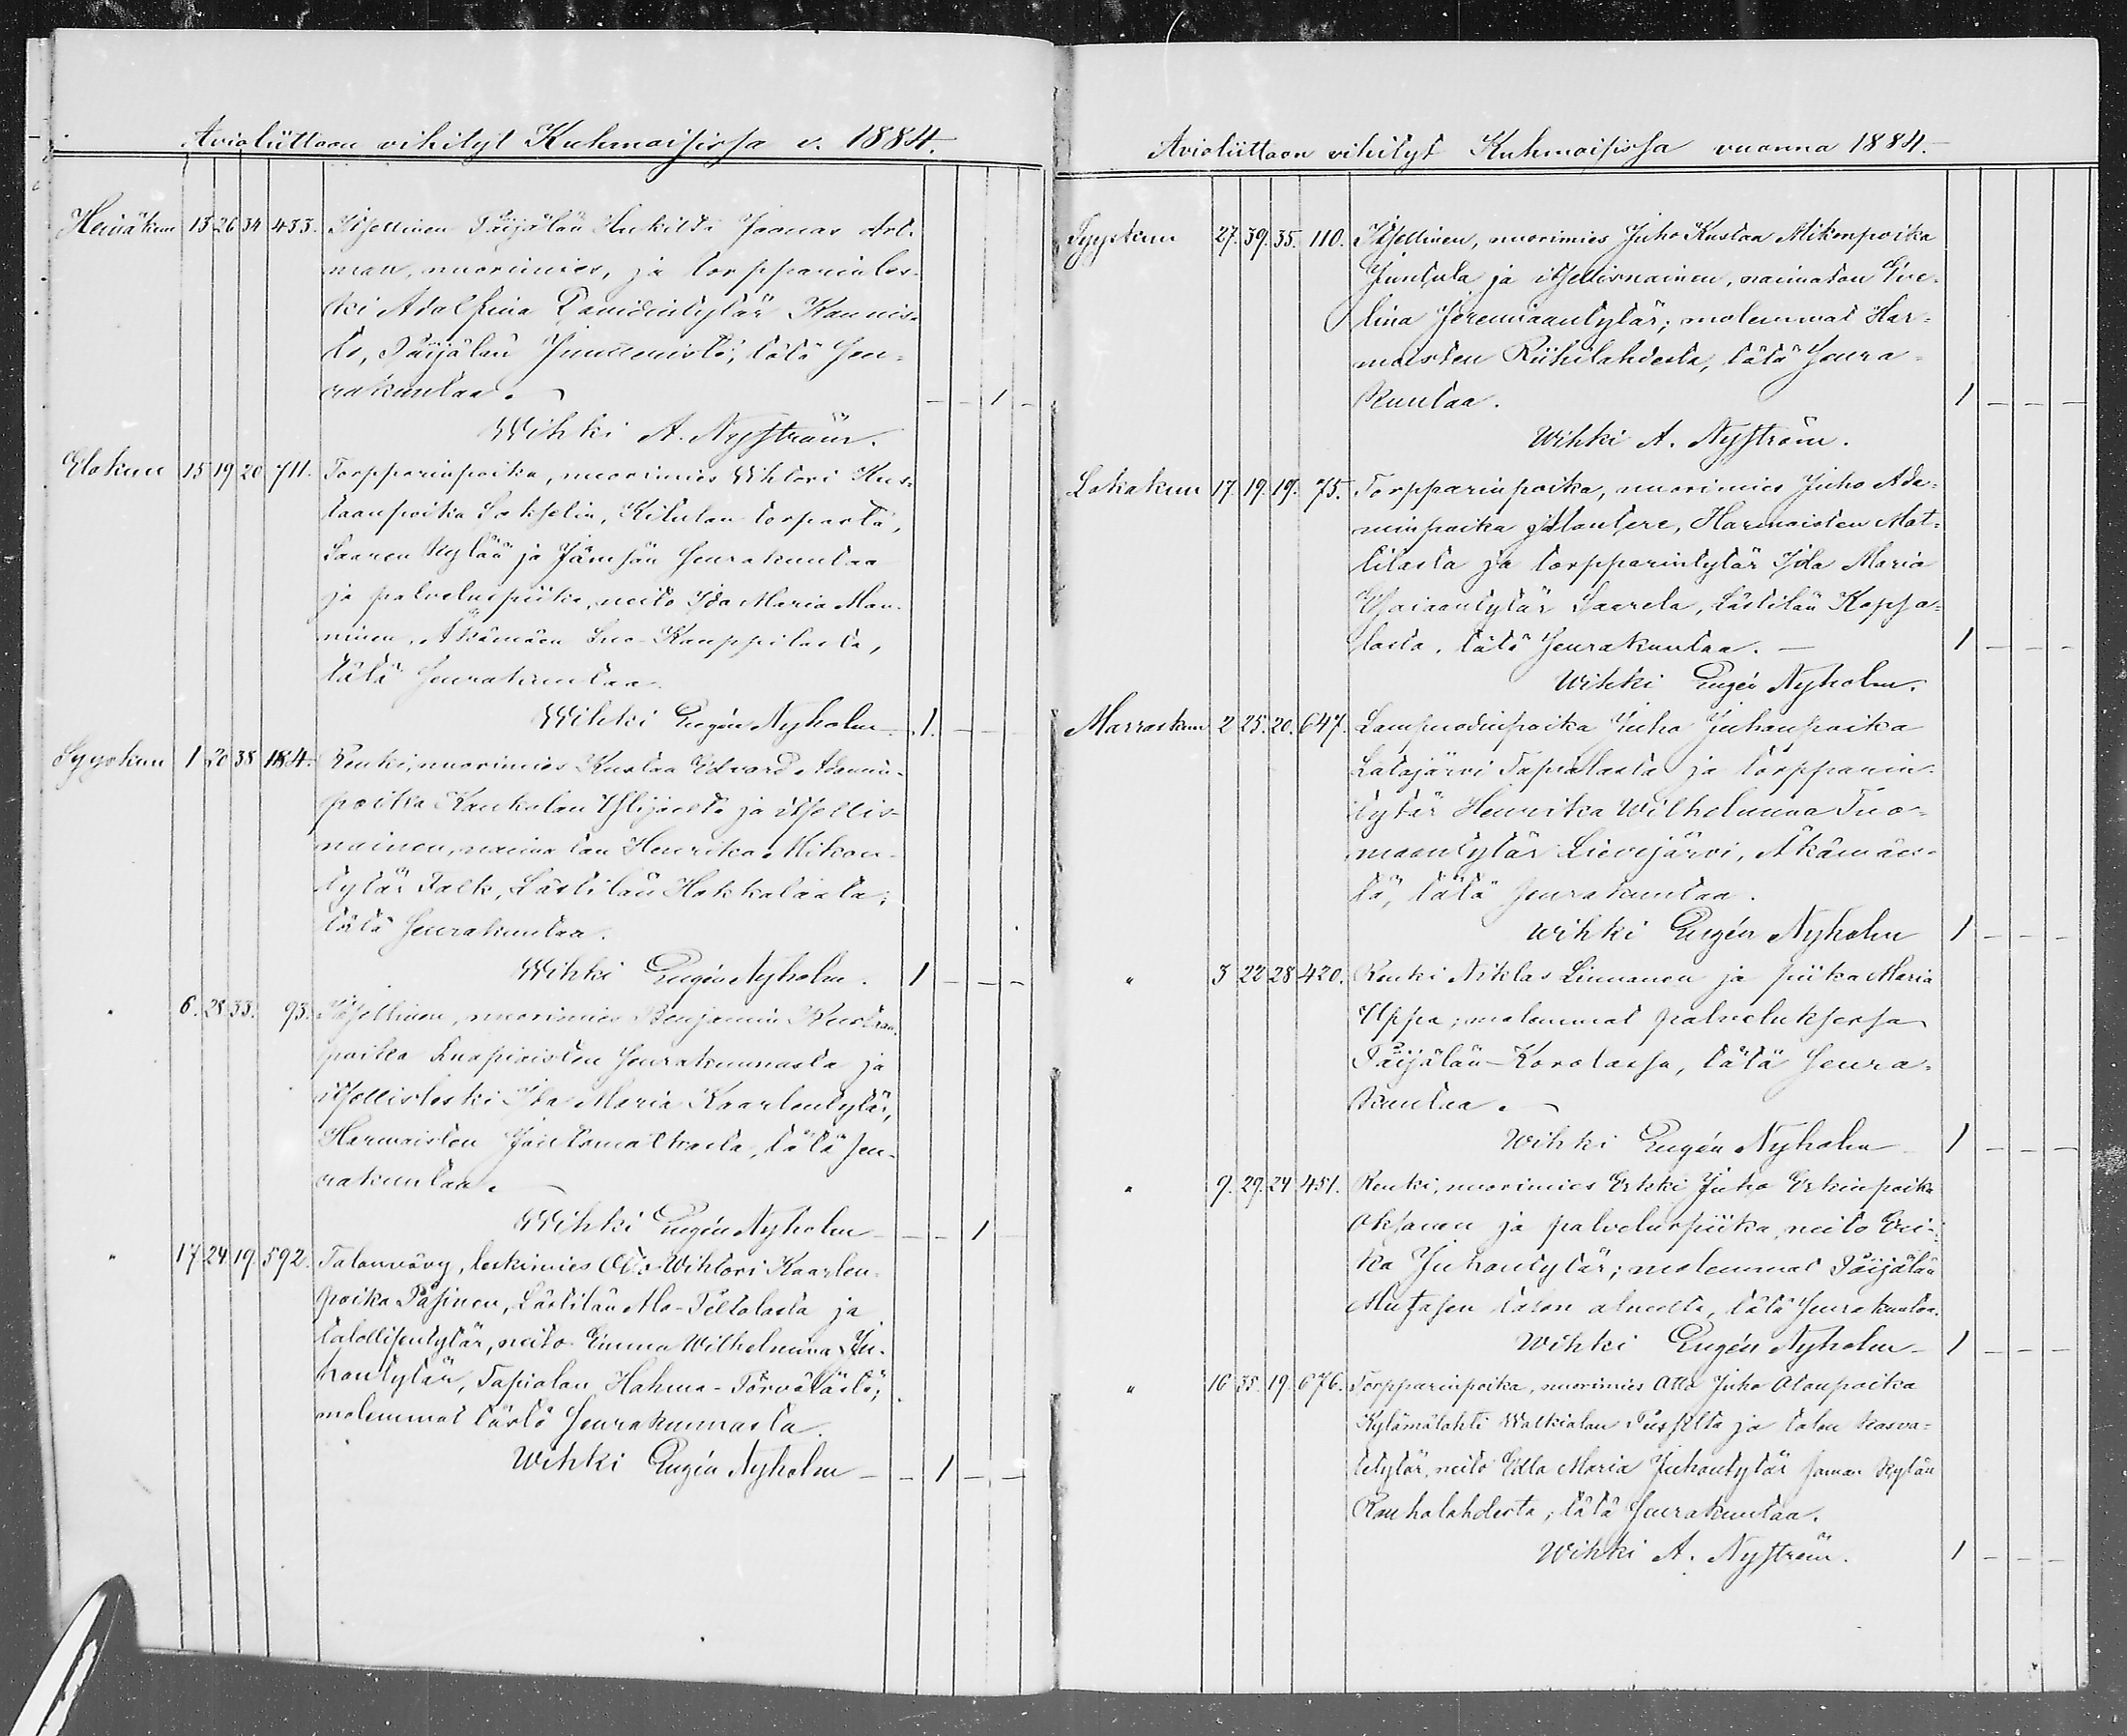 Avioliittoon vihityt Kuhmoisissa v. 1884.
Heinäkuu 13 26 34 433. Itsellinen Päijälän Hukilta Joonas Art-
man, nuorimies, ja torpparinles-
ki Adolfina Davidintytär Kannis-
to, Päijälän tätä seu-
rakuntaa. – – 1 –
Wihki A. Nyström.
Elokuu 15 19 20 711. Torpparinpoika, nuorimies Wihtori Kus-
taanpoika Kitulan torpasta,
Saaren kylää ja Jämsän seurakuntaa
ja palveluspiika, neito Ida Maria Man-
ninen, Äkämäen Iso-Kauppilasta,
tätä seurakuntaa.
Wihki Eugén Nyholm 1. – – –
Syyskuu 1 20 38 184. Renki, nuorimies Kustaa Edvard Adamin-
poika Kaukolan Ylijoelta ja itsellis-
nainen, naimaton Henrika Mikon-
tytär Falk, Lästilän Hakkalasta;
tätä seurakuntaa.
Wihki Eugén Nyholm. 1 – – –
" 6. 28 33. 93. Itsellinen, nuorimies Benjamin Kustaan-
poika Luopioisten seurakunnasta ja
itsellisleski Ida Maria Kaarlentytär,
Harmoisten tätä seu-
rakuntaa.
Wihki Eugén Nyholm – – 1 –
" 17 24 19. 592. Talonvävy, leskimies Otto Wihtori Kaarlen-
poika Päsinen, Lästilän Ala-Peltolasta ja
talollisentytär, neito Emma Wilhelmina Ju-
hontytär, Tapialan Hahmo-Törvälästä;
molemmat tästä seurakunnasta.
Wihki Eugén Nyholm – – 1 – –
Avioliittoon vihityt Kuhmoisissa vuonna 1884.
Syyskuu 27. 39. 35. 110. Itsellinen, nuorimies Juho Kustaa Mikonpoika
Juntula ja itsellisnainen, naimaton Eve-
lina Jeremiaantytär; molemmat Har-
moisten Riihilahdesta, tätä seura-
kuntaa. 1 – – –
Wihki A. Nyström.
Lokakuu 17. 19. 19. 75. Torpparinpoika, nuorimies Juho Ada-
minpoika Mantere, Harmoisten Mat-
tilasta ja torpparintytär Ida Maria
Esaiaantytär Saarela, Lästilän Koppa-
lasta, tätä seurakuntaa. – 1 – – –
Wihki Eugén Nyholm.
Marraskuu 2 25. 20. 647. Lampuodinpoika Juho Juhonpoika
Latajärvi Tapialasta ja torpparin-
tytär Henrika Wilhelmina Tuo-
maantytär Lievejärvi, Äkämäes-
tä, tätä seurakuntaa.
Wihki Eugén Nyholm 1 – – –
" 3 22 28 420. Renki Niklas Linnanen ja piika Maria
Uppa; molemmat palveluksessa
Päijälän-Korolassa, tätä seura-
kuntaa.
Wihki Eugén Nyholm 1 – – –
" 9. 29. 24 451. Renki, nuorimies Erkki Juho Erkinpoika
Oksanen ja palveluspiika, neito Eri-
ka Juhontytär; molemmat Päijälän
talon alueelta, tätä seurakuntaa.
Wihki Eugén Nyholm – 1 – – –
" 16 35. 19. 676. Torpparinpoika, nuorimies Otto Juho Otonpoika
Kylämälahti Walkialan ja talon kasva-
ttytär, neito Edla Maria Juhontytär saman kylän
Rauhalahdesta; tätä seurakuntaa.
Wihki A. Nyström. 1 – – –